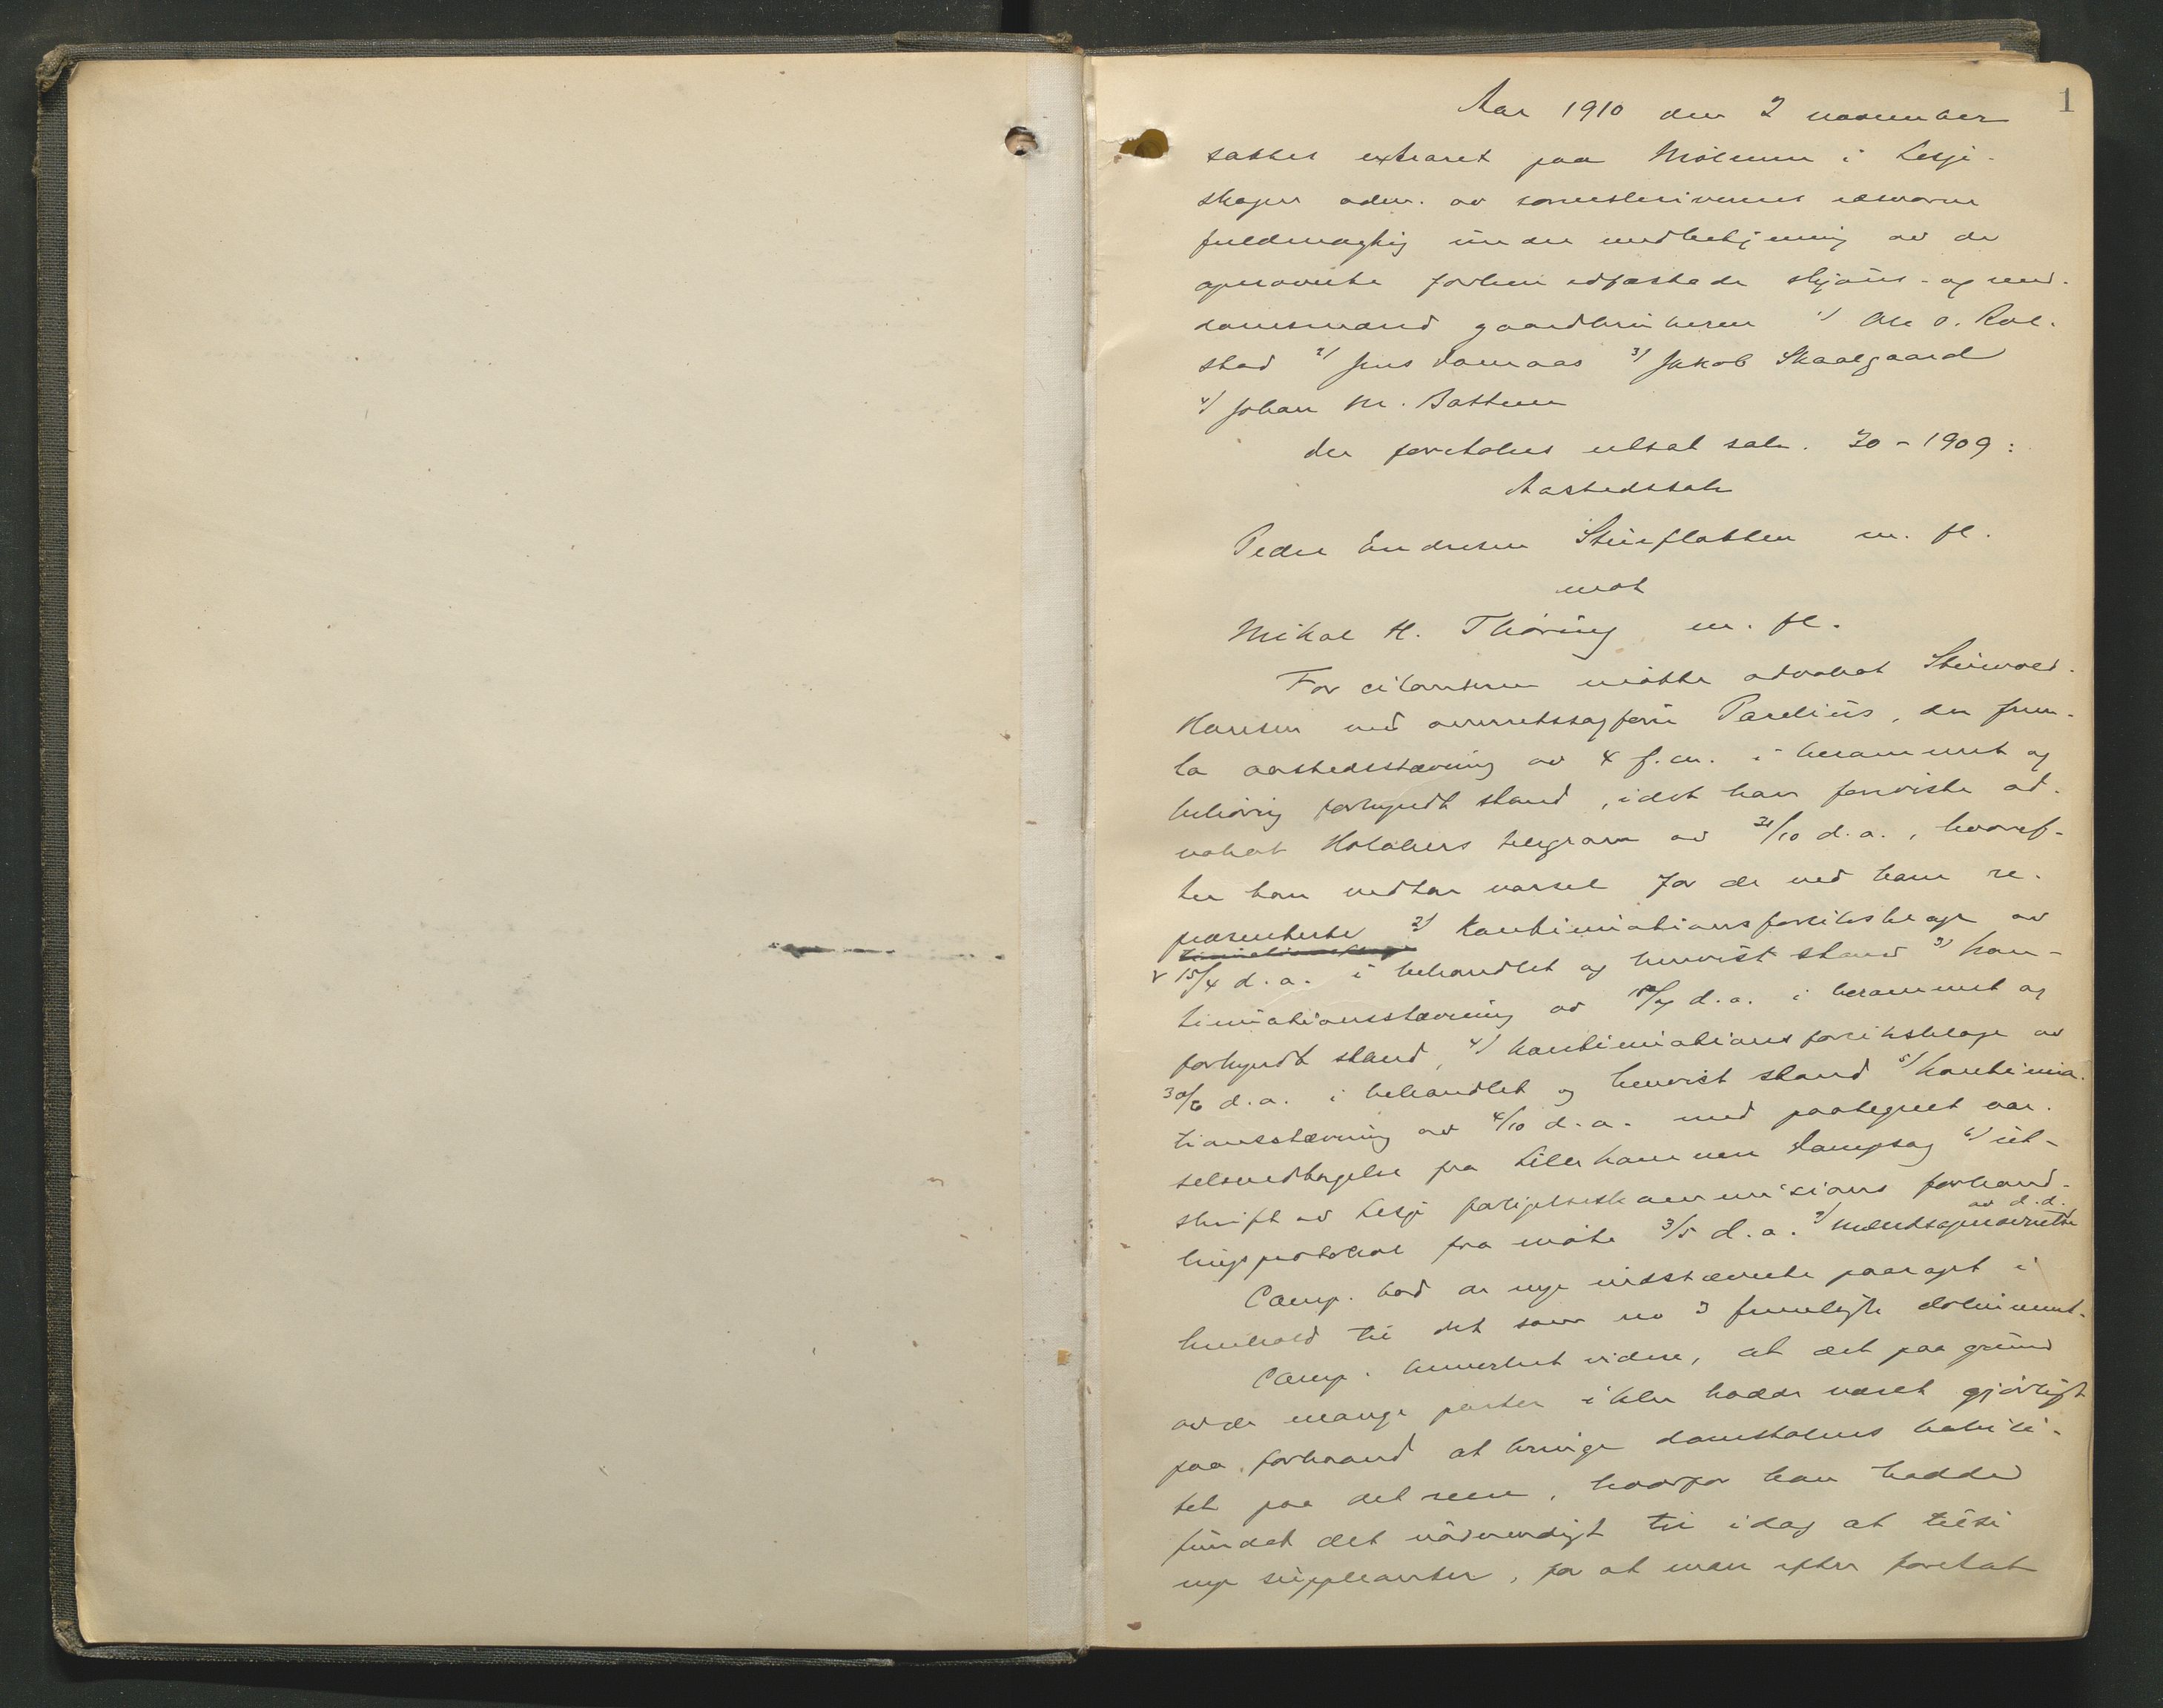 1
Aar 1910 den 2 november
sattes extraret paa Mölmen i Lesje-
skogen adm. av sorenskriverens edsvorne
fuldmægtig under medbetjening av de
opnævnte forhen edfæstede skjöns- og med-
domsmænd gaardbrukeren 1) Ole O. Rol-
stad 2) Jens Domaas 3) Jakob Skaalgaard
4) Johan M. Bottem
der foretokes utsat sak. 30 - 1909:
Aastedssak
Peder Endresen Stueflotten m. fl.
mot
Mikal H. Thöring m. fl.
For citanterne mötte advokat Steinvold-
Hansen ved overretssagförer Parelius, der frem-
la aastedsstævning av 4 f. m. i berammet og
behörig forkyndt stand, idet han foreviste ad-
vokat Holakers telegram av 31/10 d. a., hvoref-
ter han vedtar varsel for de ved ham re-
præsenterte 2) Kontinuationsforliksklage av
15/4 d. a. i behandlet og henvist stand 3) kon-
tinuationsstævning av d. a. i berammet og
forkyndt stand, 4) kontinuationsforliksklage av
30/6 d. a. i behandlet og henvist stand 5) kontinua-
tionsstævning av 4/10 d. a. med paategnet var-
selsvedtagelse fra Lillehammer Dampsag 6) ut-
skrift av Lesje forligelseskommissions forhand-
lingsprotokol fra möte 3/5 d. a. 7) mændsopnævnelse
av d. d.
Comp. bad de nye indstævnte paaropt i
henhold til det som no 3 fremlagte dokument.
Comp. bemerket videre, at det paa grund
av de mange parter ikke hadde været gjörligt
paa forhaand at bringe domstolens habili-
tet paa det rene, hvorfor han hadde
fundet det nödvendigt til idag at tilsi
nye suppleanter, for at man efter foretat